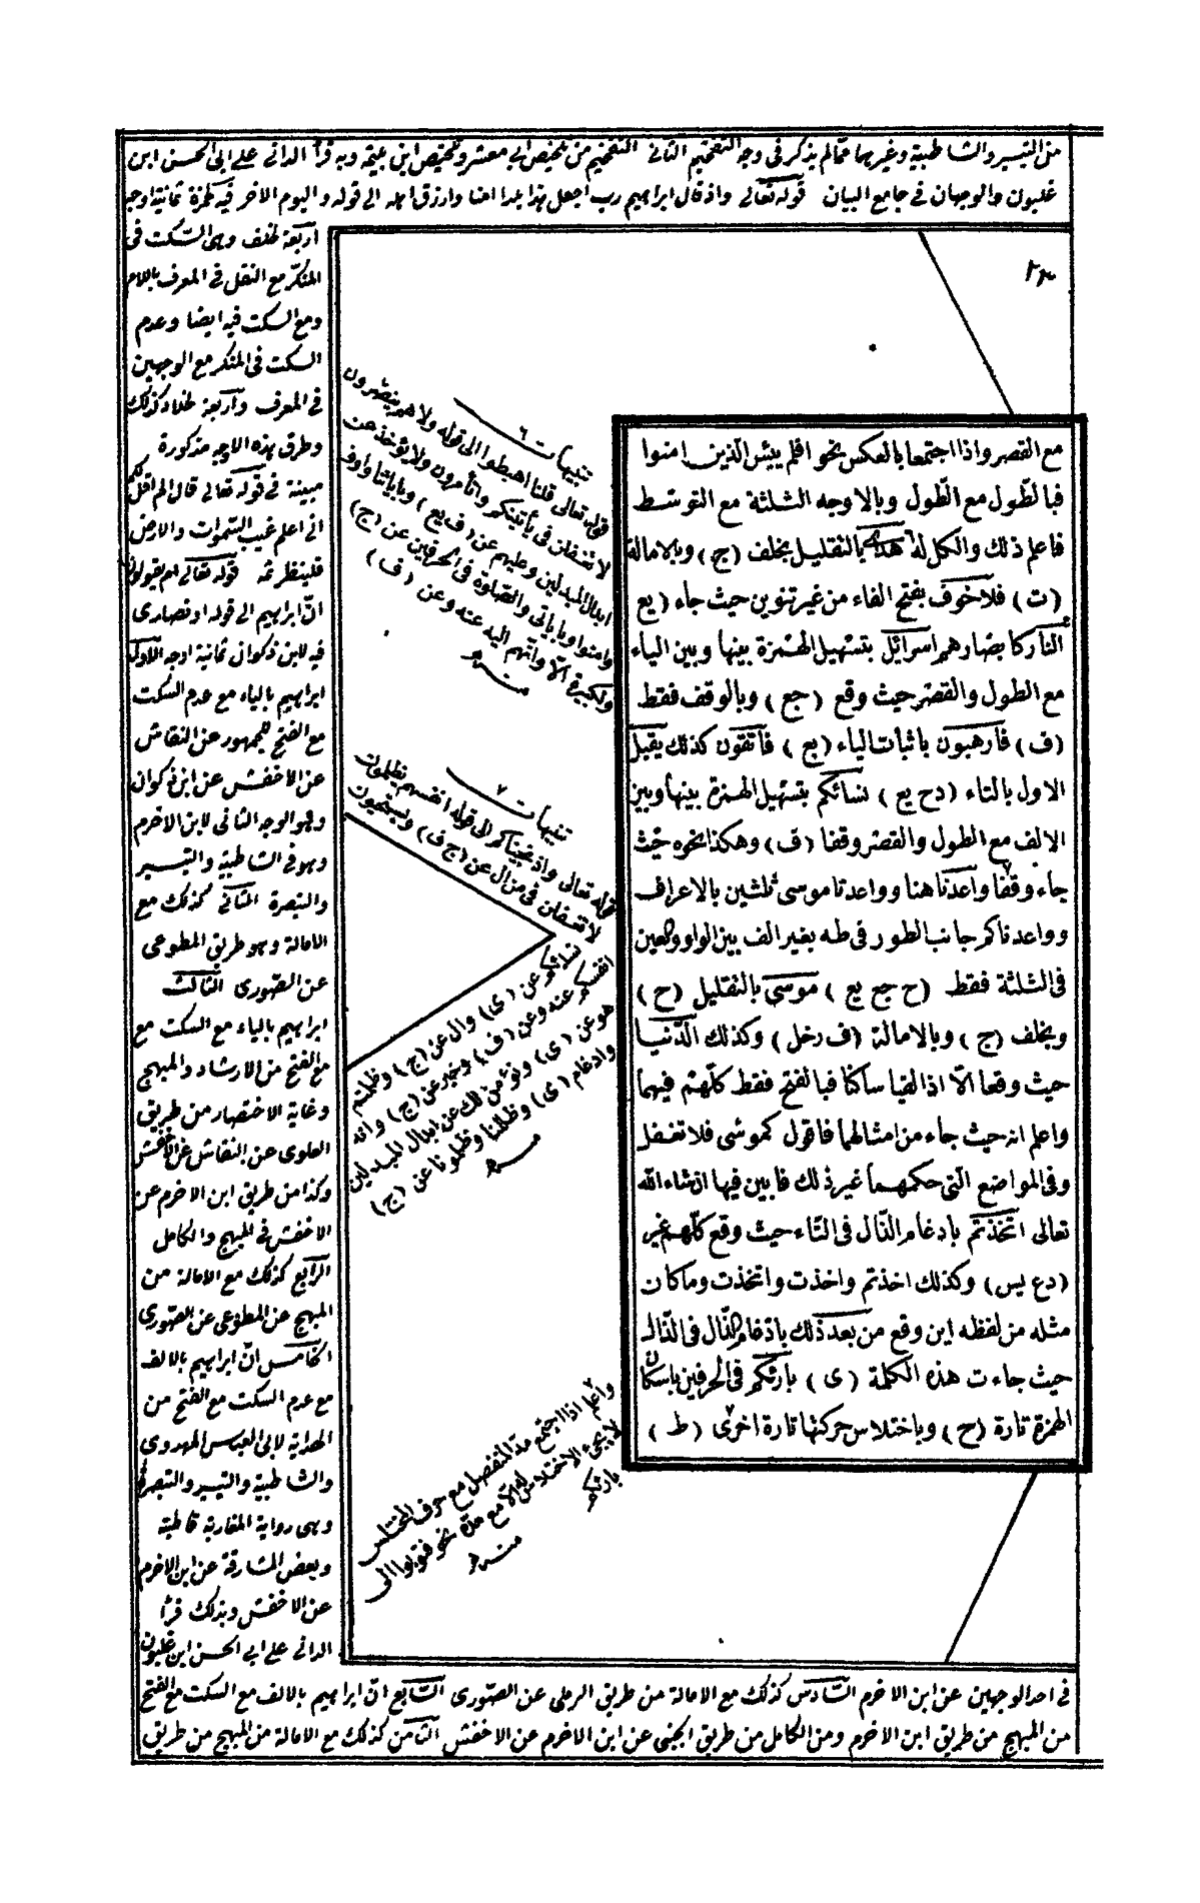 من التيسير والشاطبية وغيرهما مما لم يذكر فى وجه التفخيم الثانى التفخيم من تلخيص ابى معشر وتلخيص ابن بليمة وبه قرأ الدانى على ابى الحسن ابن
غلبون والوجهان فى جامع البيان قوله تعالى واذ قال ابراهيم رب اجعل هذا بلدا امنا وارزق اهله الى قوله واليوم الاخر فيه لحمزة ثمانية اوجه
اربعة لخلف وهى السكت فى
المنكر مع النقل فى المعرف باللام
ومع السكت فيه ايضا وعدم
السكت فى المنكر مع الوجهين
فى المعرف واربعة لخلاد كذلك
وطرق هذه الاوجه مذكورة
مبينة فى قوله تعالى قال الم اقل لكم
انى اعلم غيب السموات والارض
فلينظر ثمه قوله تعالى ام يقولون
ان ابراهيم الى قوله او نصارى
فيه لابن ذكوان ثمانية اوجه الاول
ابراهيم بالياء مع عدم السكت
مع الفتح للجمهور عن النقاش
عن الاخفش عن ابن ذكوان
وهو الوجه الثانى لابن الاخرم
وهو فى الشاطبية والتيسير
والتبصرة الثانى كذلك مع
الامالة وهو طريق المطوعى
عن الصورى الثالث
ابراهيم بالياء مع السكت مع
مع الفتح من الارشاد والمبهج
وغاية الاختصار من طريق
العلوى عن النقاش عن الاخفش
وكذا من طريق ابن الاخرم عن
الاخفش فى المبهج والكامل
الرابع كذلك مع الامالة من
المبهج عن المطوعى عن الصورى
الخامس ان ابراهيم بالالف
مع عدم السكت مع الفتح من
الهداية لابى العباس المهدوى
والشاطبية والتيسير والتبصرة
وهى رواية المغاربة قاطبة
وبعض المشارقة عن ابن الاخرم
عن الاخفش وبذلك قرأ
الدانى على ابى الحسن ابن غلبون
فى احد الوجهين عن ابن الاخرم السادس كذلك مع الامالة من طريق الرملى عن الصورى السابع ان ابراهيم بالالف مع السكت مع الفتح
من المبهج من طريق ابن الاخرم ومن الكامل من طريق الجبنى عن ابن الاخرم عن الاخفش الثامن كذلك مع الامالة من المبهج من طريق
٢٣
مع القصر واذا اجتمعا بالعكس نحو افلم ييئس الذين امنوا
فبالطول مع الطول وبالاوجه الثلثة مع التوسط
فاعلم ذلك والكل له هداى بالتقليل بخلف (ج) وبالامالة
(ت) فلا خوف بفتح الفاء من غير تنوين حيث جاء (يع)
النار كابصارهم اسرائل بتسهيل الهمزة بينها وبين الياء
مع الطول والقصر حيث وقع (جع) وبالوقف فقط
(ف) فارهبون باثبات الياء (يع) فاتقون كذلك يقبل
الاول بالتاء (دح يع) نسائكم بتسهيل الهمزة بينها وبين
الالف مع الطول والقصر وقفا (ف) وهكذا نحوه حيث
جاء وقفا واعدنا هنا وواعدنا موسى ثلثين بالاعراف
وواعدناكم جانب الطور فى طه بغير الف بين الواو والعين
فى الثلثة فقط (ح جع يع) موسى بالتقليل (ح)
وبخلف (ج) وبالامالة (ف رخل) وكذلك الدنيا
حيث وقعا الا اذا لقيا ساكنا فبالفتح فقط كلهم فيهما
واعلم انه حيث جاء من امثالهما فاقول كموسى فلا تغفل
وفى المواضع التى حكمهما غير ذلك فابين فيها ان شاء الله
تعالى اتخذتم بادغام الذال فى التاء حيث وقع كلهم غير
(دع يس) وكذلك اخذتم واخذت واتخذت وما كان
مثله من لفظه اين وقع من بعد ذلك بادغام الدال فى الذال
حيث جاءت هذه الكلمة (ى) بارئكم فى الحرفين باسكان
الهمزة تارة (ح) وباختلاس حركتها تارة اخرى (ط)
تنبيهات ٦
قوله تعالى قلنا اهبطوا الى قوله ولا هم ينصرون
لا تغفلن فى يأتينكم واتأمرون ولا يؤخذ عن
ابدال المبدلين وعليهم عن (ف يع) وباياتنا واوف
وامنوا وايا ياتى والصلوة فى الحرفين عن (ج)
ولكبيرة الا وانهم اليه عنه وعن (ف)
منه
تنبيهات ٧
قوله تعالى واذ نجيناكم الى قوله انفسهم يظلمون
لا تغفلن فى من ال عن (ج ف) ويستحيون
نسائكم عن (ى) وال عن (ج) وظلمتم
انفسكم عنه وعن (ف) وخير عن (ج) وانه
هو عن (ى) ونؤمن لك عن ابدال المبدلين
وادغام (ى) وظللنا وظلمونا عن (ج)
منه
واعلم اذا اجتمع مد المنفصل مع حرف المختلس
لا يجئ الاختلاس الا مع مده نحو فتوبوا الى
بارئكم
منه